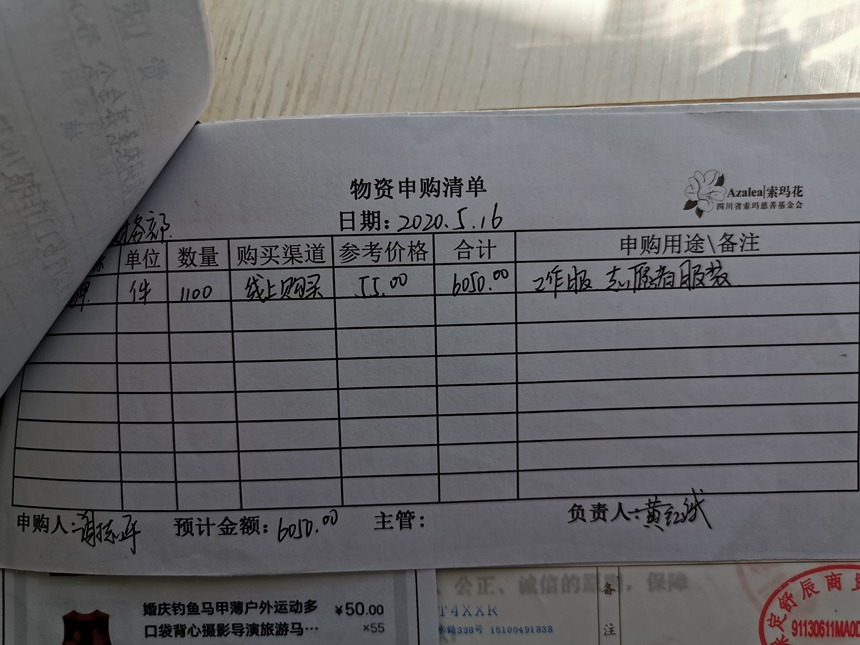 物资申购清单
Azalea|索玛花
四川省索玛慈善基金会
日期：2020.5.16
务部
单位 数量 购买渠道 参考价格 合计 申购用途\备注
件 1100 线上购买 55.00 6050.00 工作服 志愿者服装
申购人： 预计金额：6050.00 主管： 负责人：黄红斌
婚庆钓鱼马甲薄户外运动多 ¥50.00
口袋背心摄影导演旅游马… ×55
、公正、诚信的原则，保障
T4XXR
338号 15100491838
备
注
定舒辰商
91130611MA0D